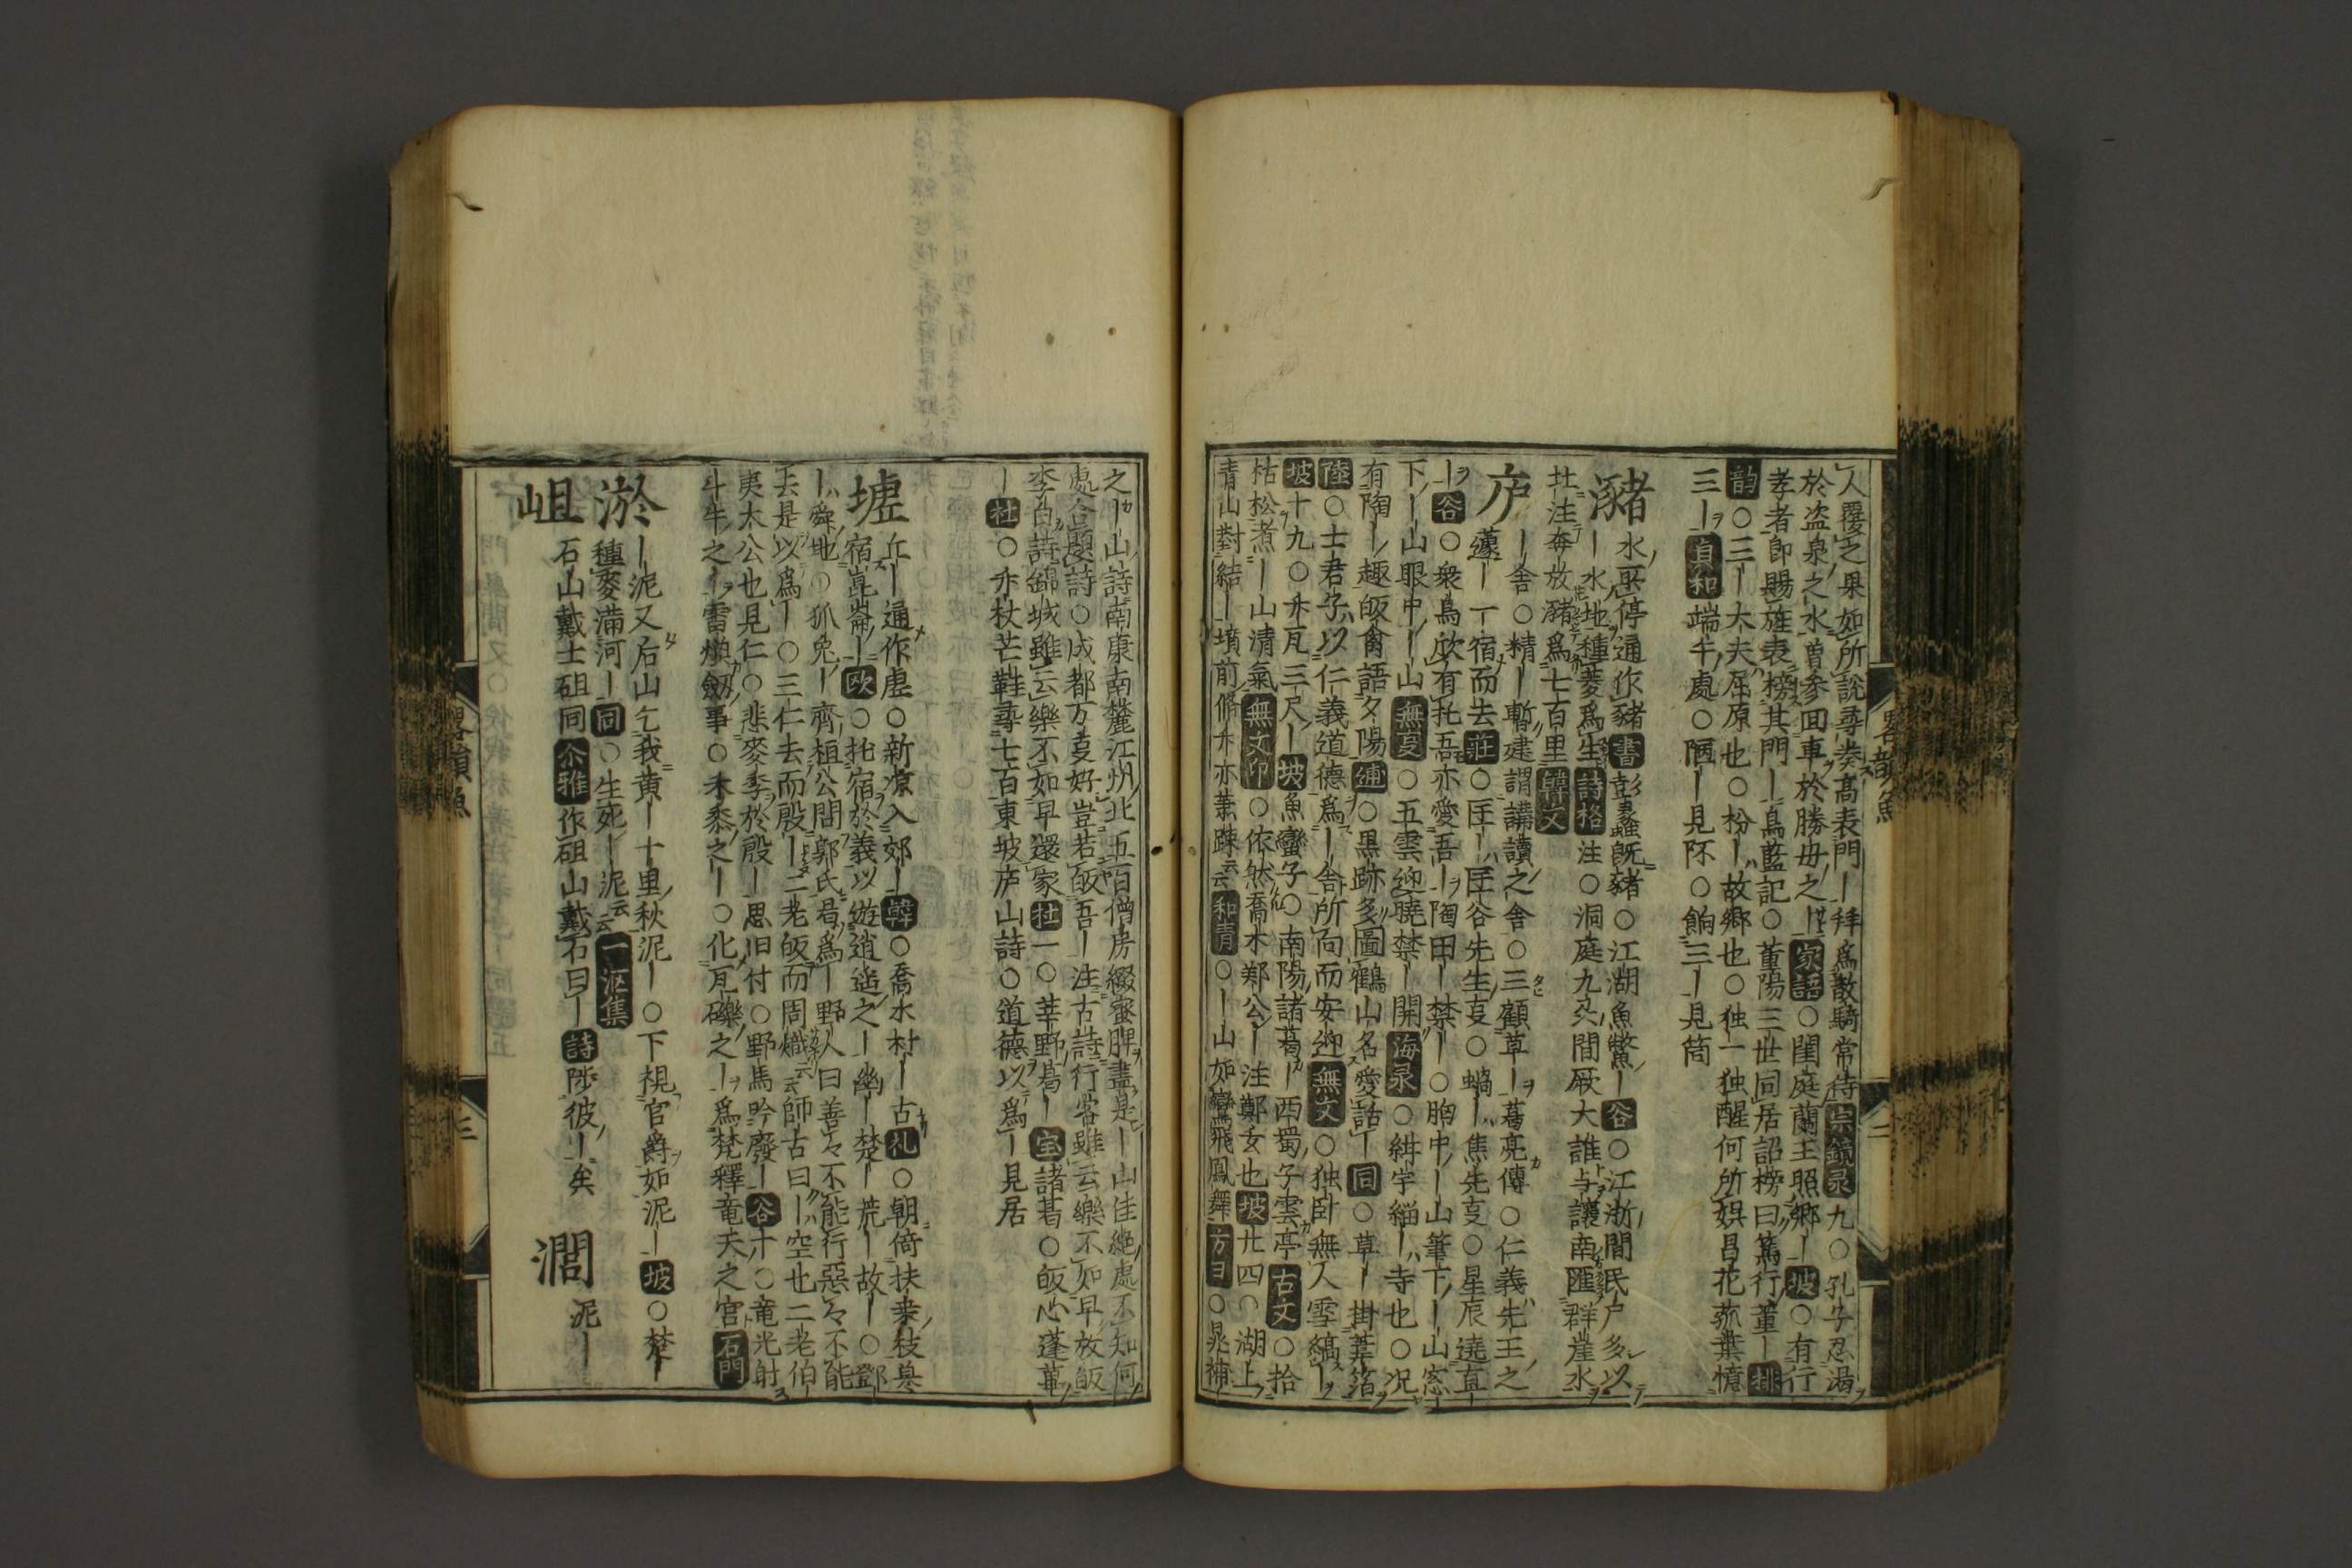 人覆之果如所說尋奏高表門｜拜爲散騎常侍宗鏡录九○孔子忍渴
於盗泉之水曽参回車於勝母之｜家語○閨庭蘭玉照郷｜坡○有行
孝者即賜旌表榜其門｜烏藍記○董陽三世同居詔榜曰篤行董｜排
韵○三｜大夫屈原也○枌｜故郷也○独一独醒何所娯昌花菰葉憶
三｜貞和端午處○陋｜見阫○餉三｜見筒
瀦
水所停通作豬書彭蠡既豬○江湖魚鱉｜谷○江浙間民户多以
｜水地種菱爲生詩格注○洞庭九州間厥大誰与讓南匯群崖水
壯注奔放瀦爲七百里韓文
庐
｜舍○精｜暫建謂講讀之舍○三顧草｜葛亮傳○仁義先王之
蘧｜一宿而去莊○匡｜匡谷先生㕝○蝸｜焦先㕝○星辰遶直
｜谷○衆鳥欣有托吾亦愛吾｜陶田｜禁｜○胸中｜山筆下｜山窓
下｜山眼中｜山無㕝○五雲迎曉禁｜開海录○緝宇緇｜寺也○况
有陶｜趣皈禽語夕陽逋○黒跡多圖鶴山名愛話｜同○草｜掛葦箔
陸○士君子以仁義道德爲｜舎所向而安迎無文○独卧無人雪縞｜
坡十九○亦瓦三尺｜坡魚蠻子○南陽諸葛｜西蜀子雲亭古文○拾
枯松煮｜山清氣無文印○依然喬木鄭公｜注鄭玄也坡廿四○湖上
青山對結｜墳前脩亦亦蕭踈云云和青○｜山如鸞飛鳳舞方ヨ○晁補
之｜山詩南康南麓江州北五百僧房綴蜜脾盡是｜山佳絶處不知何
處合題詩○成都万㕝好豈若皈吾｜注古詩行客雖云樂不如早放皈
李白詩錦城雖云樂不如早還家杜一○莘野葛｜室諸葛○皈心蓬蓽
｜杜○亦杖芒鞋尋七百東坡庐山詩○道德以爲｜見居
墟
丘｜通作虚○新凉入郊｜韓○喬木村｜古礼○朝倚扶桒枝暮
宿崑崙｜欧○托宿於義以遊逍遥之｜幽｜楚｜荒｜故｜○鄧
｜舜地○狐兔｜齊桓公間郭氏曷爲｜野人曰善々不能行惡々不能
去是以爲｜○三仁去而殷｜二老皈而周熾云云師古曰｜空也二老伯
夷太公也見仁○悲麥秀於殷｜思旧付○野馬吟廢｜谷十○竜光射
斗牛之｜雷煥劔事○禾黍之｜○化瓦礫之｜爲梵釋竜天之宮石門
淤
｜泥又后山乞我黄｜十里秋泥｜○下視官爵如泥｜坡○楚｜
種麥滿河｜同○生死｜泥云云一漚集
岨
石山戴土砠同尒雅作砠山戴石曰｜詩陟彼｜矣
澗
泥｜
畧韻魚
三
畧韻魚
二